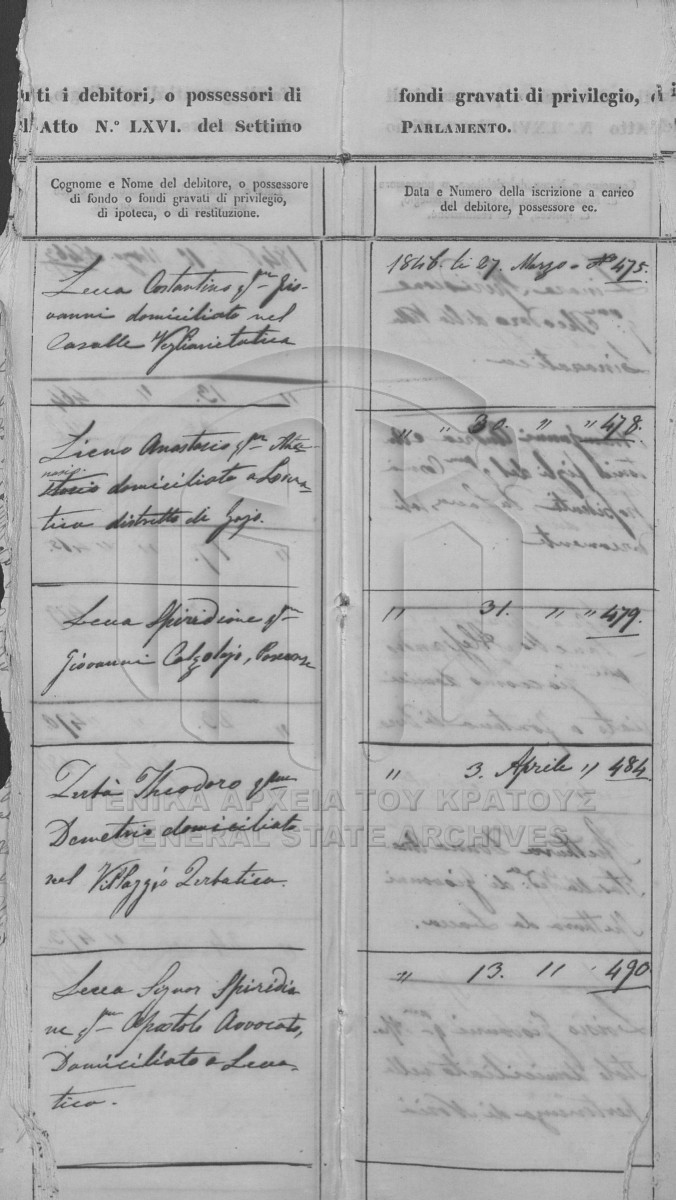 ti i debitori, o possessori di
Atto N.º LXVI. del Settimo
fondi gravati di privilegio,
PARLAMENTO.
Cognome e Nome del debitore, o possessore
di fondo o fondi gravati di privilegio,
di ipoteca, o di restituzione.
Data e Numero della iscrizione a carico
del debitore, possessore ec.
Lecca Costantino qm Gio-
vanni domiciliato nel
Casalle
1846. li 27. Marzo " Nº 475.
Anastasio qm
domiciliato a
tica distretto di
" " 30. " " 478.
Lecca Spiridione qm
Giovanni Calzolajo,
" 31. " " 479.
Zerbà Theodoro qm
Demetrio domiciliato
nel Villaggio Zerbatica.
" 3. Aprile " 484
Lecca Signor Spiridio
ne qm Apostolo Avvocato,
Domiciliato a Leca-
tica.
" 13. " " 490
ΓΕΝΙΚΑ ΑΡΧΕΙΑ ΤΟΥ ΚΡΑΤΟΥΣ
GENERAL STATE ARCHIVES